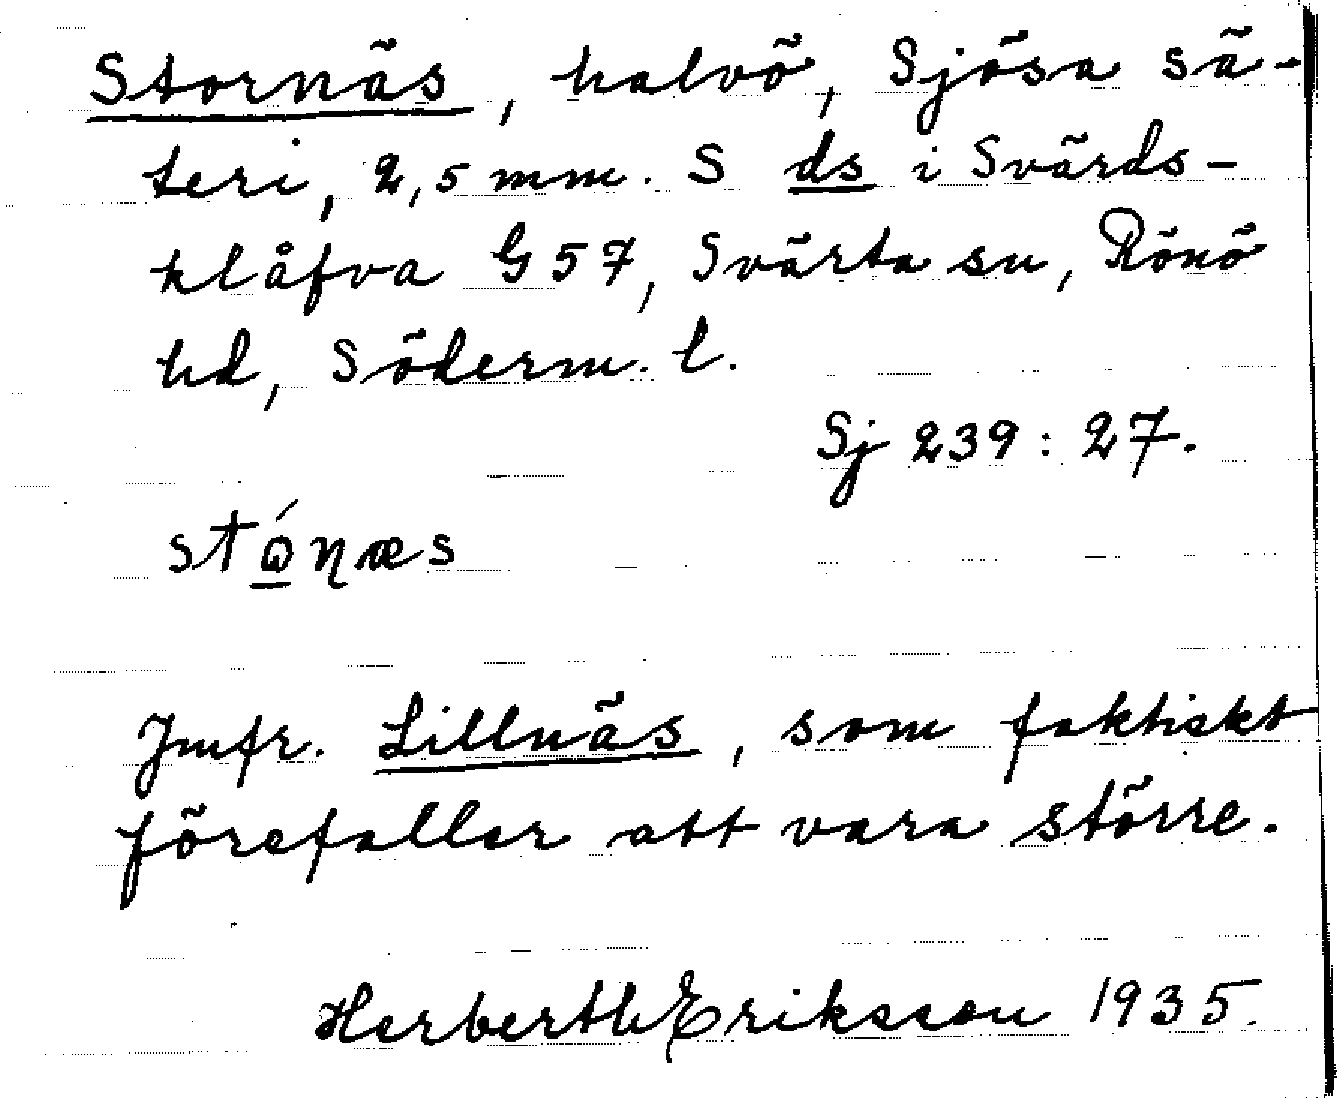 Stornäs, halvö, Sjösa sä-
teri, 2,5 mm. S ds i Svärds-
klåfva G 57, Svärta sn, Rönö
hd, Söderm. l.
Sj 239:27.
Jmfr. Lillnäs, som faktiskt
förefaller att vara större.
Herbert Eriksson 1935.